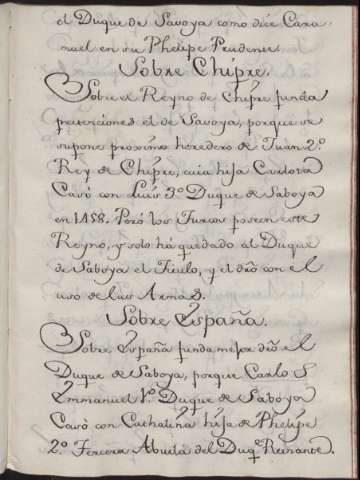 el Duque de Savoya como dice Cara
muel en su Phelipe Prudente.
Sobre Chipre.
Sobre el Reyno de Chipre funda
pretenciones el de Savoya, porque se
supone proximo heredero de Juan 2.º
Rey de Chipre, cuia hija Carlota
Casó con Luis 3.º Duque de Saboya
en 1458. Peró los Turcos poseen este
Reyno, y solo há quedado al Duque
de Saboya el Titulo, y el dro con el
uso de las Armas.
Sobre España.
Sobre España funda mejor dro el
Duque de Saboya, porque Carlos
Emmanuel 1.º Duque de Saboya
Casó con Cathalina hija de Phelipe
2.º Tercera Abuela del Duq.e Reinante.